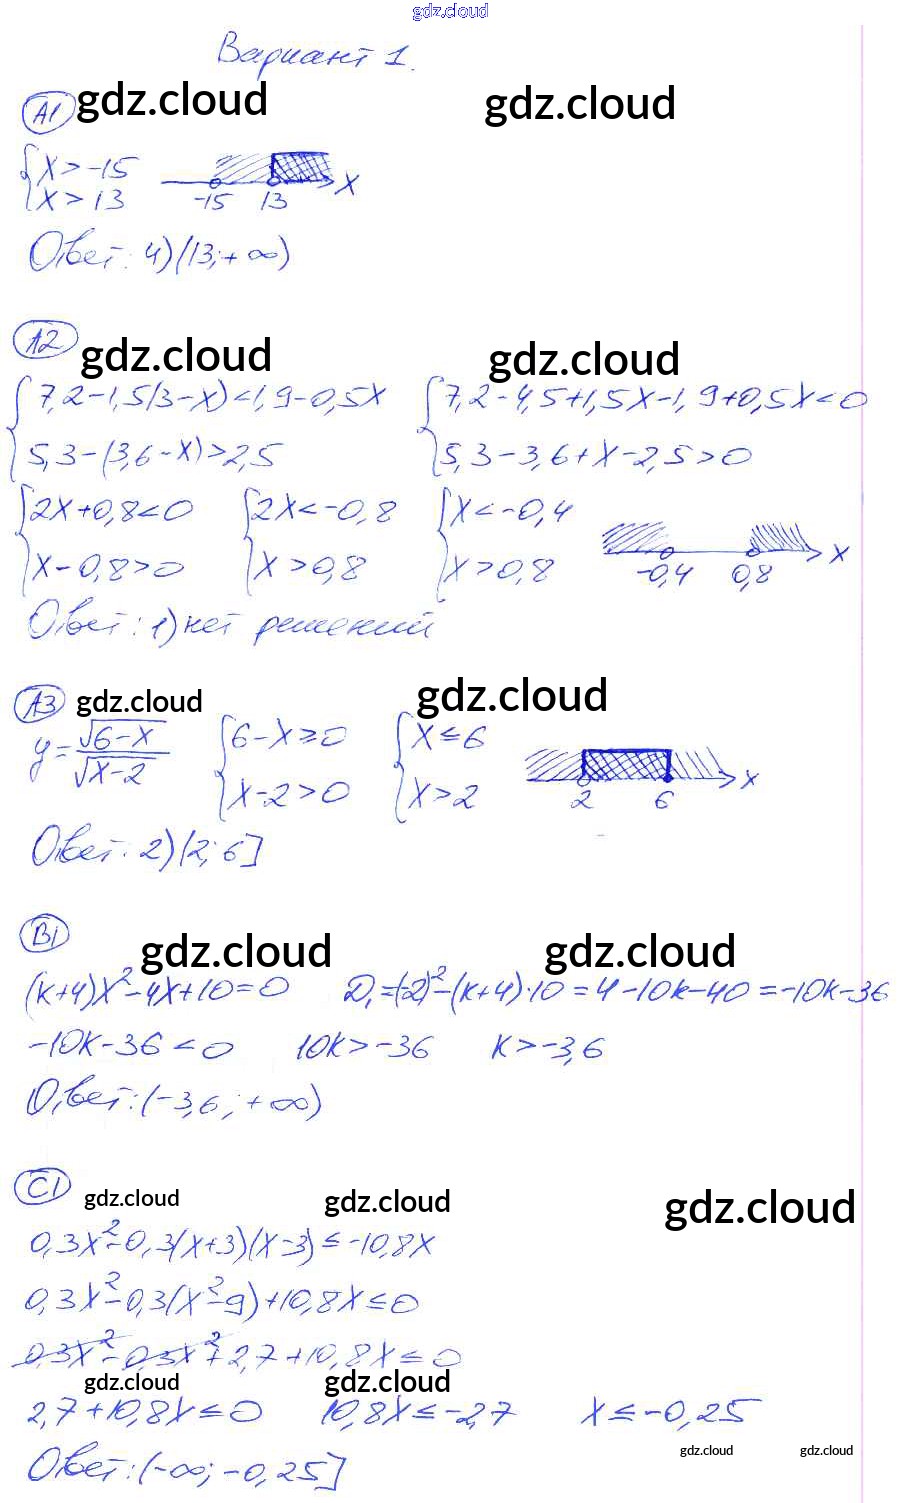 gdz.cloud
Вариант 1.
A1 gdz.cloud gdz.cloud
{ x > -15
x > 13
-15 13 x
Ответ: 4) (13; +∞)
A2 gdz.cloud gdz.cloud
{ 7,2 - 1,5(3 - x) < 1,9 - 0,5x { 7,2 - 4,5 + 1,5x - 1,9 + 0,5x < 0
5,3 - (3,6 - x) > 2,5 5,3 - 3,6 + x - 2,5 > 0
{ 2x + 0,8 < 0 { 2x < -0,8 { x < -0,4
x - 0,8 > 0 x > 0,8 x > 0,8 -0,4 0,8 x
Ответ: 1) нет решений
A3 gdz.cloud gdz.cloud
y = √(6 - x) / √(x - 2) { 6 - x ≥ 0 { x ≤ 6
x - 2 > 0 x > 2 2 6 x
Ответ: 2) (2; 6]
B1 gdz.cloud gdz.cloud
(k+4)x² - 4x + 10 = 0 D₁ = (-2)² - (k+4)·10 = 4 - 10k - 40 = -10k - 36
-10k - 36 < 0 10k > -36 k > -3,6
Ответ: (-3,6; +∞)
C1 gdz.cloud gdz.cloud gdz.cloud
0,3x² - 0,3(x+3)(x-3) ≤ -10,8x
0,3x² - 0,3(x² - 9) + 10,8x ≤ 0
0,3x² - 0,3x² + 2,7 + 10,8x ≤ 0
gdz.cloud gdz.cloud
2,7 + 10,8x ≤ 0 10,8x ≤ -2,7 x ≤ -0,25
gdz.cloud gdz.cloud
Ответ: (-∞; -0,25]